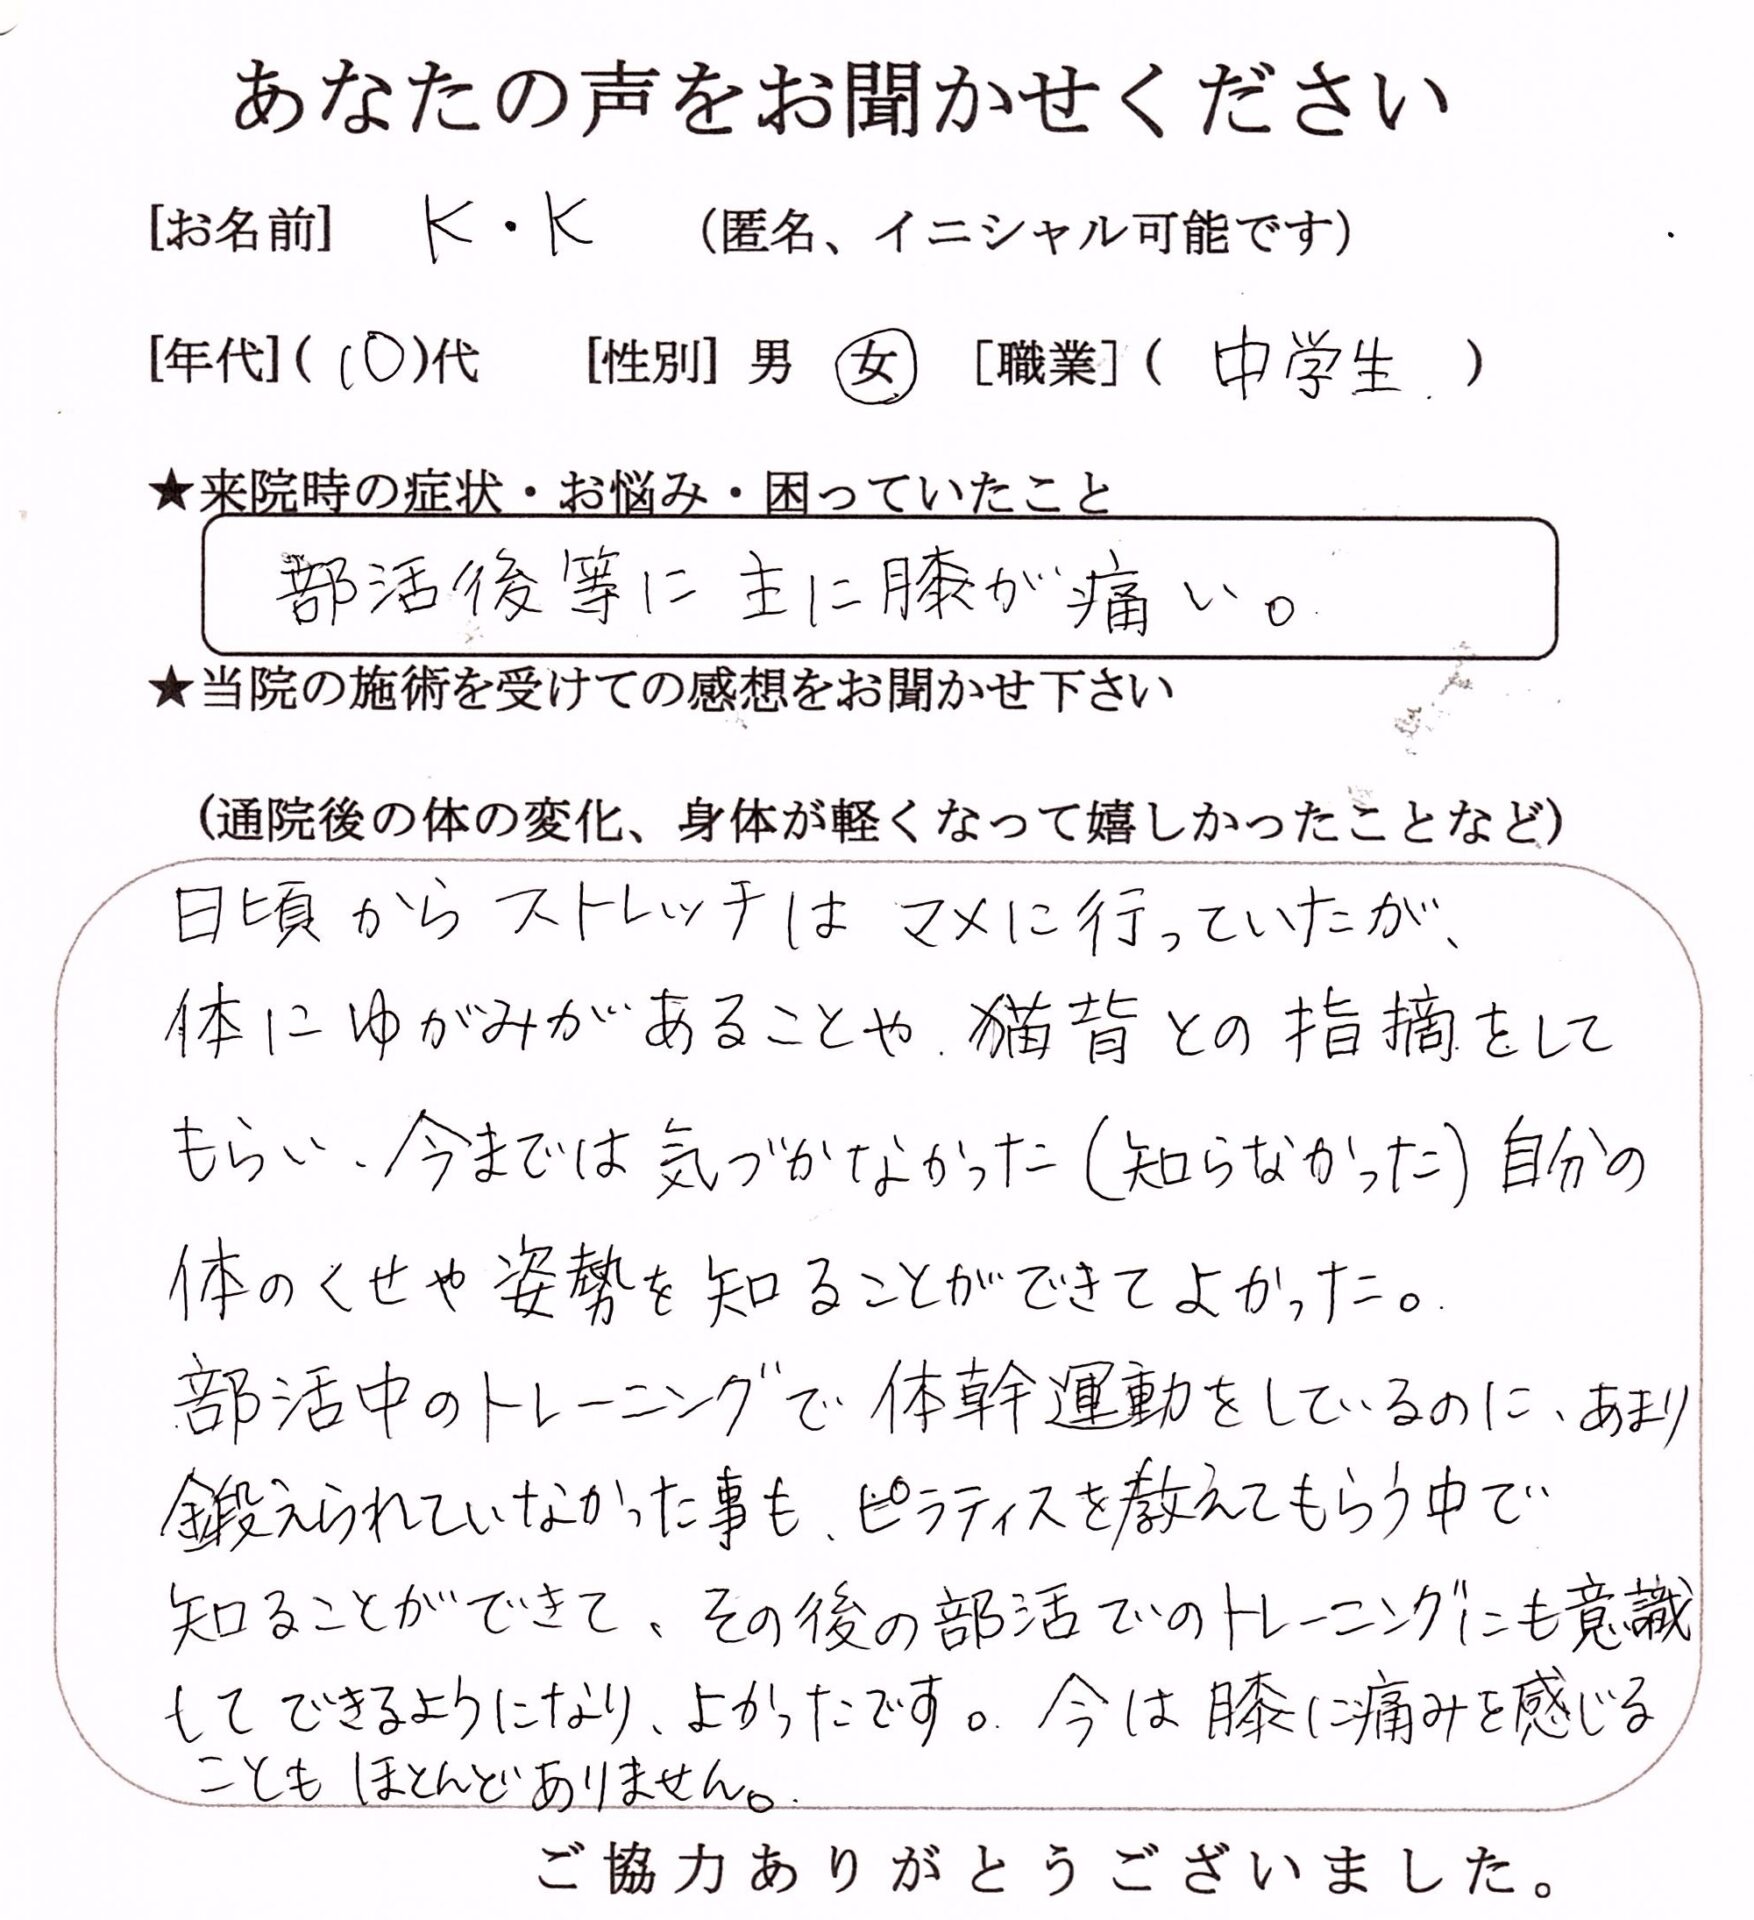 あなたの声をお聞かせください
[お名前] K・K (匿名、イニシャル可能です)
[年代](10)代 [性別] 男 女 [職業]( 中学生 )
★来院時の症状・お悩み・困っていたこと
部活後等に主に膝が痛い。
★当院の施術を受けての感想をお聞かせ下さい
(通院後の体の変化、身体が軽くなって嬉しかったことなど)
日頃からストレッチはマメに行っていたが、
体にゆがみがあることや、猫背との指摘をして
もらい、今までは気づかなかった(知らなかった)自分の
体のくせや姿勢を知ることができてよかった。
部活中のトレーニングで体幹運動をしているのに、あまり
鍛えられていなかった事も、ピラティスを教えてもらう中で
知ることができて、その後の部活でのトレーニングにも意識
してできるようになり、よかったです。今は膝に痛みを感じる
こともほとんどありません。
ご協力ありがとうございました。